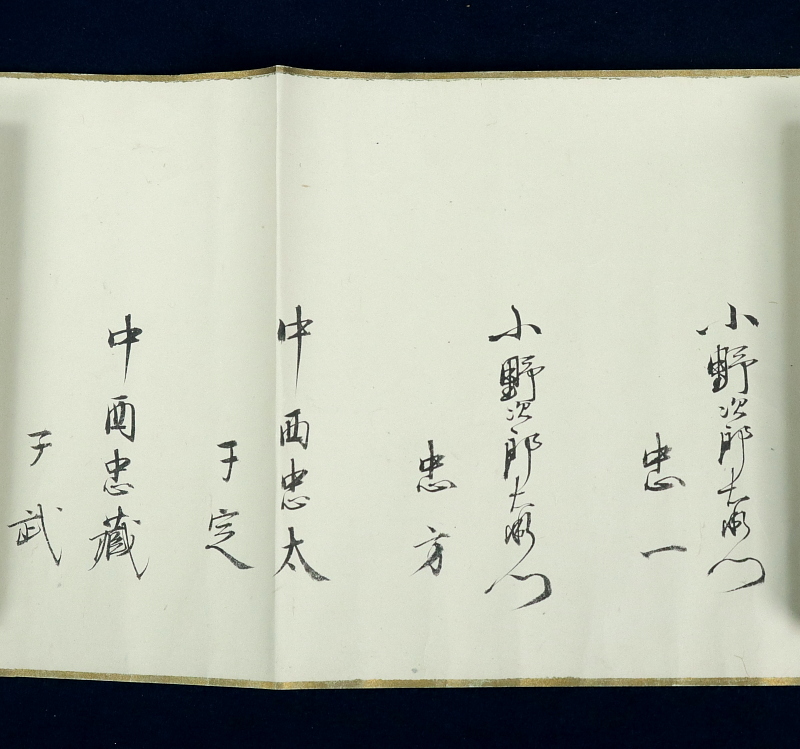 小野次郎右衛門
忠一
小野次郎右衛門
忠方
中西忠太
子定
中西忠藏
子武